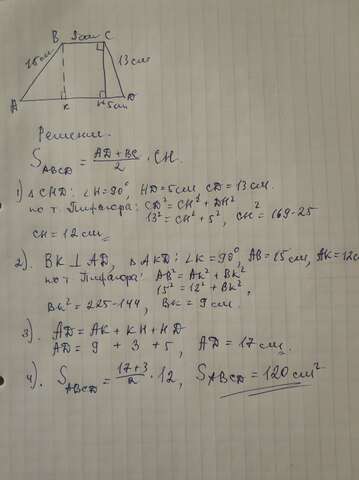 B 3см C
15см 13см
A K H 5см D
Решение.
S ABCD = (AD + BC)/2 · CH.
1) △ CHD: ∠H = 90°, HD = 5см, CD = 13см.
по т. Пифагора: CD² = CH² + DH²
13² = CH² + 5², CH² = 169 - 25
CH = 12см
2). BK ⊥ AD, △ AKD: ∠K = 90°, AB = 15см, AK = 12см
по т. Пифагора: AB² = AK² + BK²
15² = 12² + BK²,
BK² = 225 - 144, BK = 9см.
3). AD = AK + KH + HD
AD = 9 + 3 + 5, AD = 17см.
4). S ABCD = (17 + 3)/2 · 12, S ABCD = 120см²